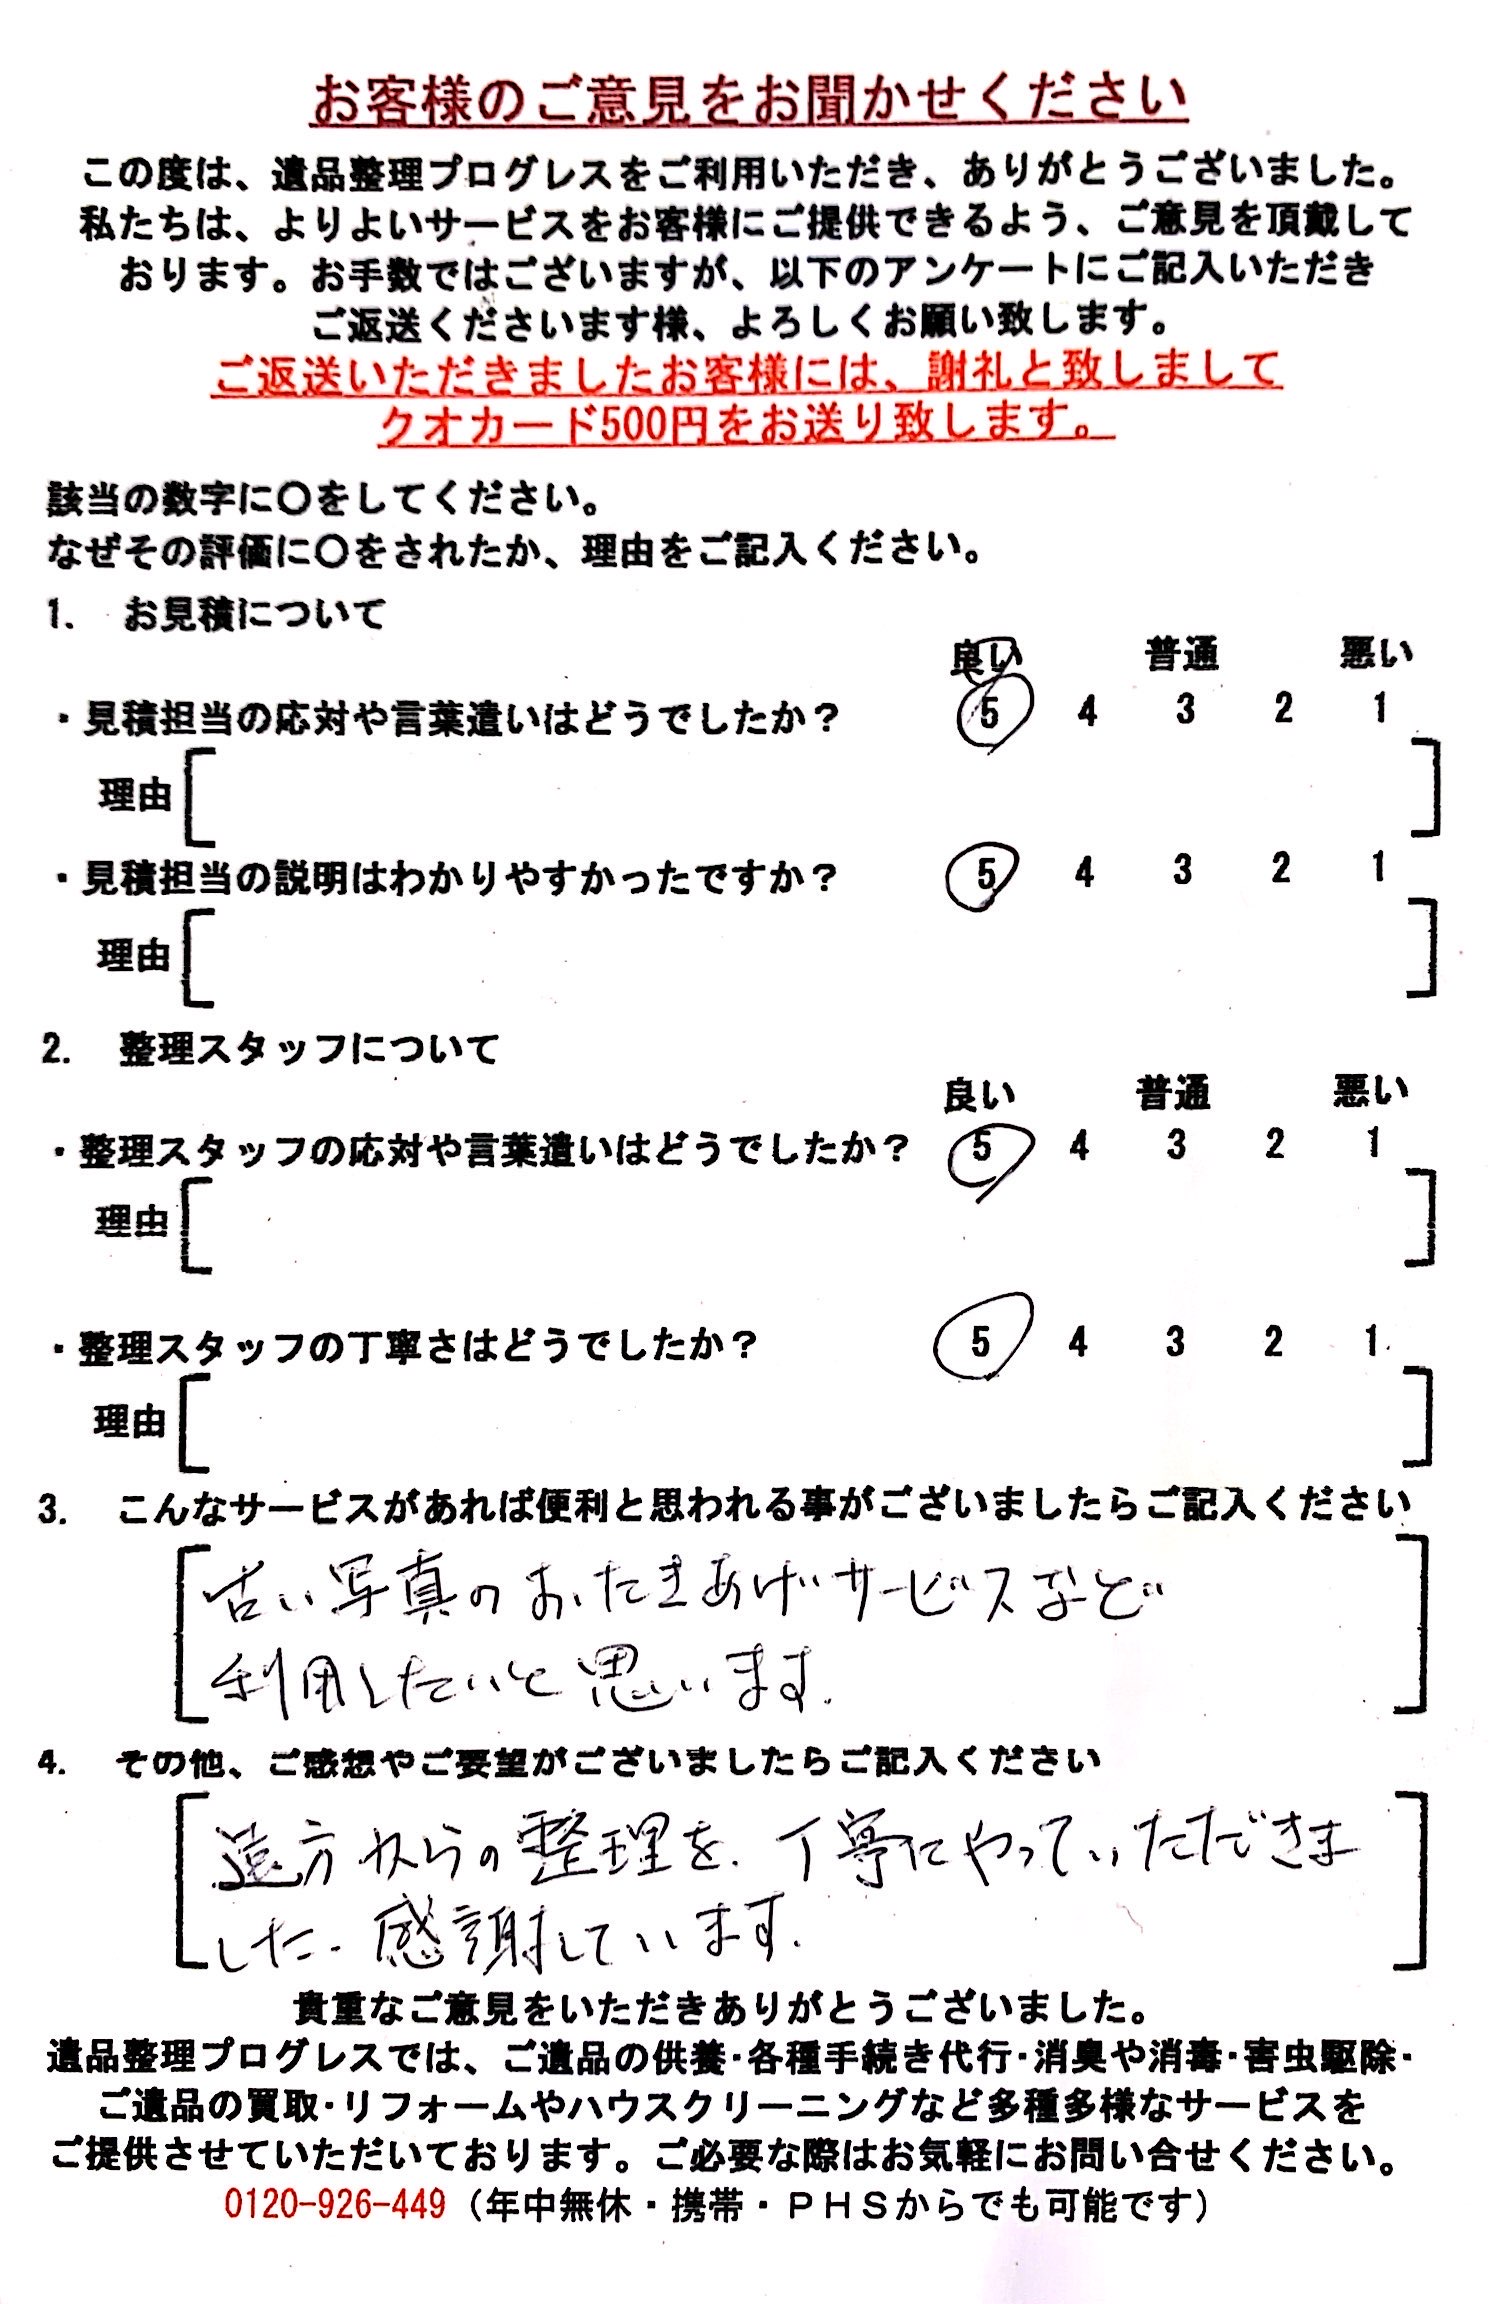 お客様のご意見をお聞かせください
この度は、遺品整理プログレスをご利用いただき、ありがとうございました。
私たちは、よりよいサービスをお客様にご提供できるよう、ご意見を頂戴して
おります。お手数ではございますが、以下のアンケートにご記入いただき
ご返送くださいます様、よろしくお願い致します。
ご返送いただきましたお客様には、謝礼と致しまして
クオカード500円をお送り致します。
該当の数字に〇をしてください。
なぜその評価に〇をされたか、理由をご記入ください。
1. お見積について
良い 普通 悪い
・見積担当の応対や言葉遣いはどうでしたか？ 5 4 3 2 1
理由
・見積担当の説明はわかりやすかったですか？ 5 4 3 2 1
理由
2. 整理スタッフについて
良い 普通 悪い
・整理スタッフの応対や言葉遣いはどうでしたか？ 5 4 3 2 1
理由
・整理スタッフの丁寧さはどうでしたか？ 5 4 3 2 1
理由
3. こんなサービスがあれば便利と思われる事がございましたらご記入ください
古い写真のおたきあげサービスなど
利用したいと思います.
4. その他、ご感想やご要望がございましたらご記入ください
遠方からの整理を、丁寧にやっていただきま
した. 感謝しています.
貴重なご意見をいただきありがとうございました。
遺品整理プログレスでは、ご遺品の供養・各種手続き代行・消臭や消毒・害虫駆除・
ご遺品の買取・リフォームやハウスクリーニングなど多種多様なサービスを
ご提供させていただいております。ご必要な際はお気軽にお問い合せください。
0120-926-449（年中無休・携帯・ＰＨＳからでも可能です）